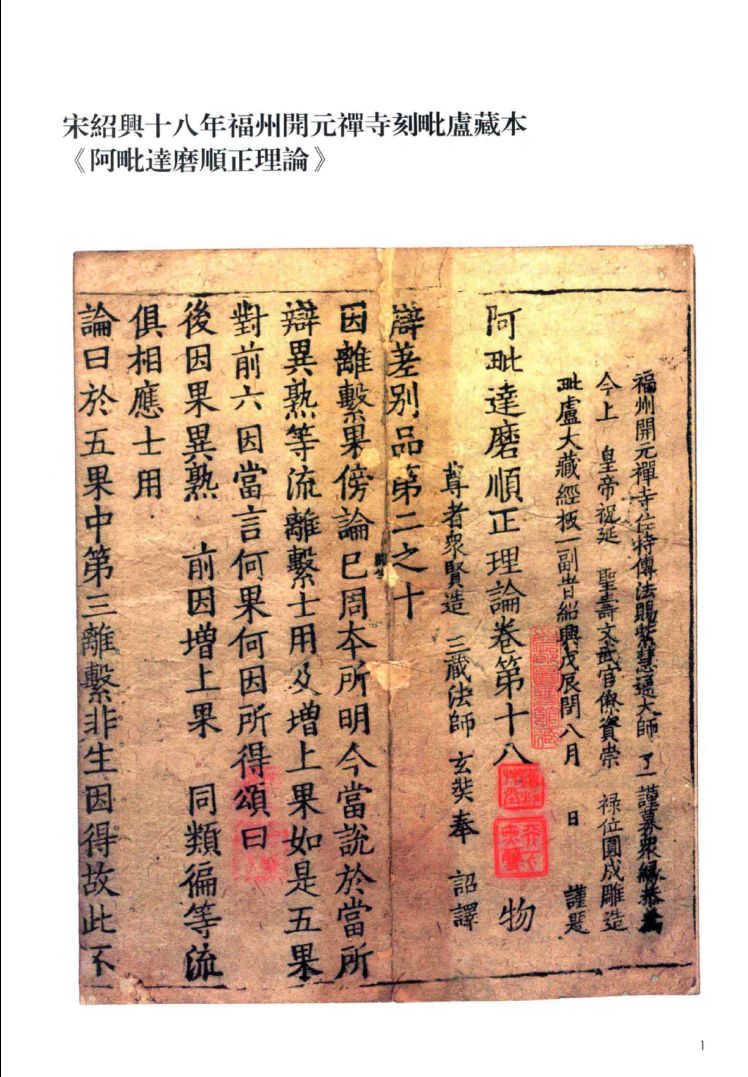 宋紹興十八年福州開元禪寺刻毗盧藏本
《阿毗達磨順正理論》
福州開元禪寺住持傳法賜紫慧通大師 了一 謹募衆緣恭爲
今上 皇帝祝延 聖壽文武官僚資崇 祿位圓成雕造
毗盧大藏經板一副旹紹興戊辰閏八月 日 謹題
阿毗達磨順正理論卷第十八 物
尊者衆賢造 三藏法師 玄奘奉 詔譯
辯差別品第二之十
因離繫果傍論已周本所明今當說於當所
辯異熟等流離繫士用及增上果如是五果
對前六因當言何果何因所得頌曰
後因果異熟 前因增上果 同類徧等流
俱相應士用
論曰於五果中第三離繫非生因得故此不
1